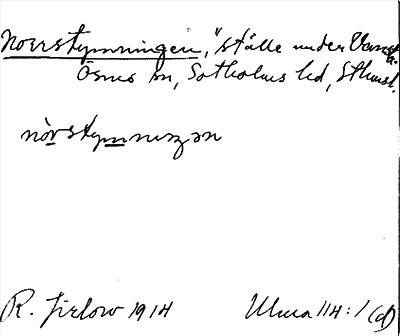 Norrstymningen, "ställe under Vansta
Ösmo sn, Sotholms hd, Sthmsl.
R. Jirlow 1914
Ulma 114:1 (d)